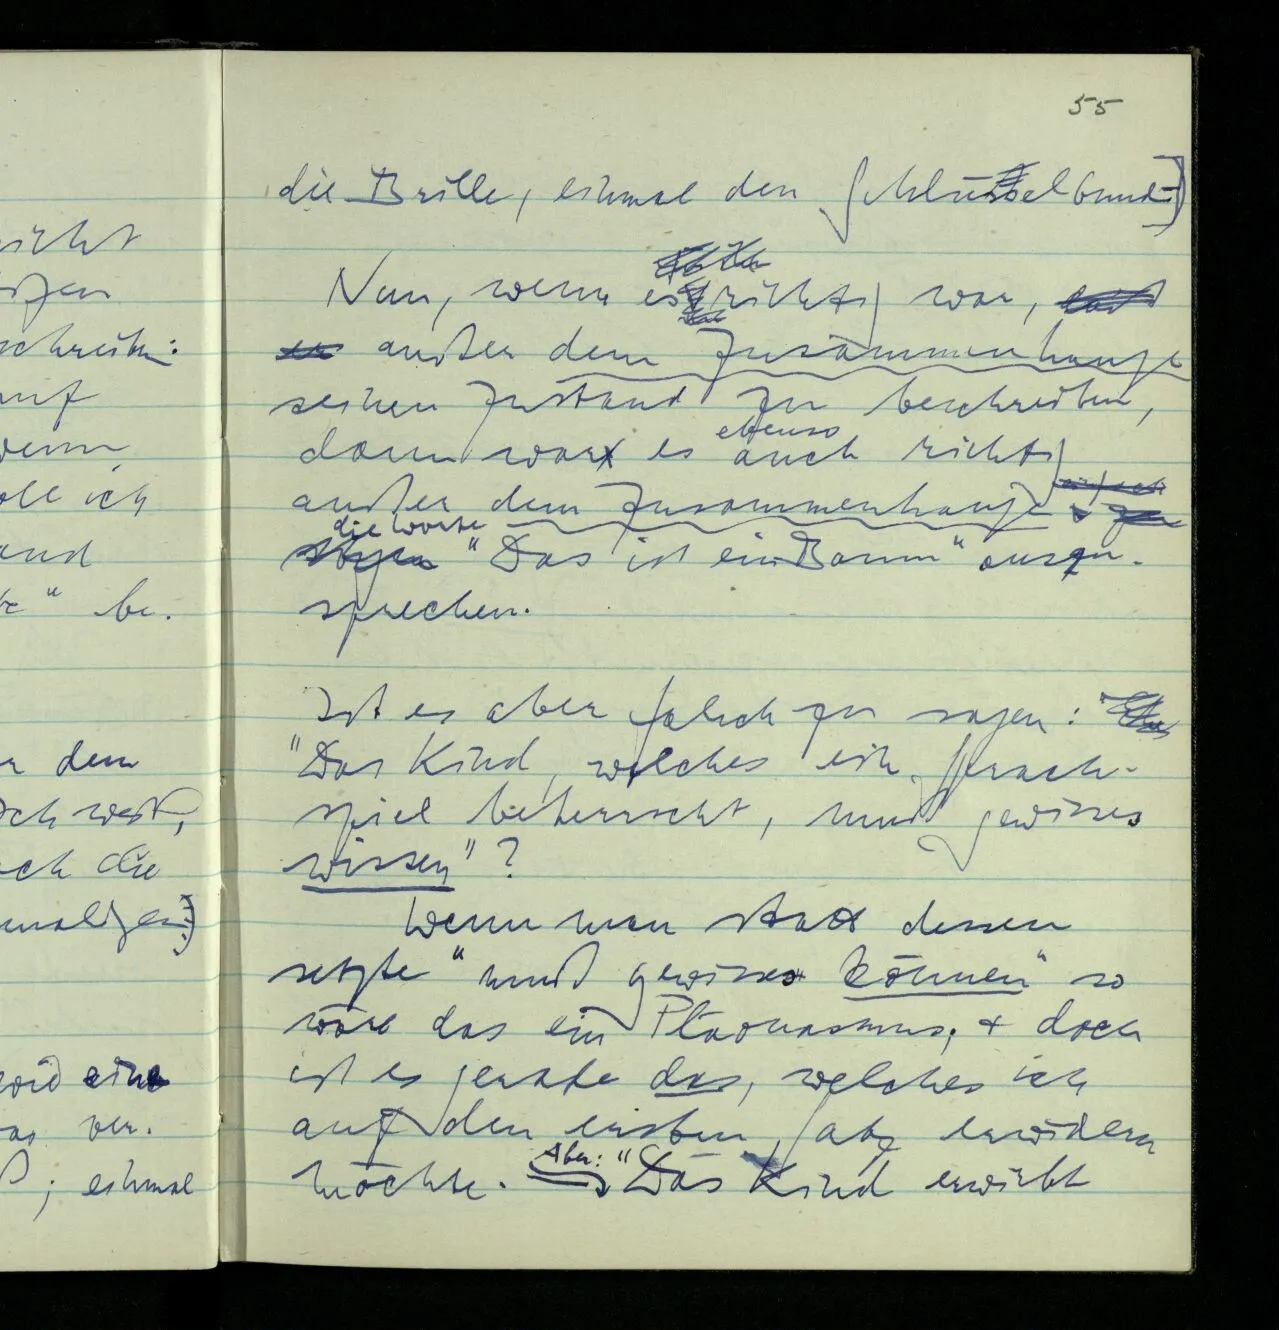 55
die Brille, einmal den Schlüsselbund.]
Nun, wenn es richtig war,
außer dem Zusammenhange
seinen Zustand zu beschreiben,
dann war es ebenso auch richtig
außer dem Zusammenhange
die Worte "Das ist ein Baum" auszu-
sprechen.
Ist es aber falsch zu sagen:
"Das Kind, welches ein Sprach-
spiel beherrscht, muß gewisses
wissen"?
Wenn man statt dessen
setzte "muß gewisses können" so
wäre das ein Pläonasmus, + doch
ist es gerade das, welches ich
auf den ersten Satz erwidern
möchte. Aber: "Das Kind erwirbt
nicht
schreiben:
auf
wenn
soll ich
und
" be-
dem
die
eine
ver-
; einmal